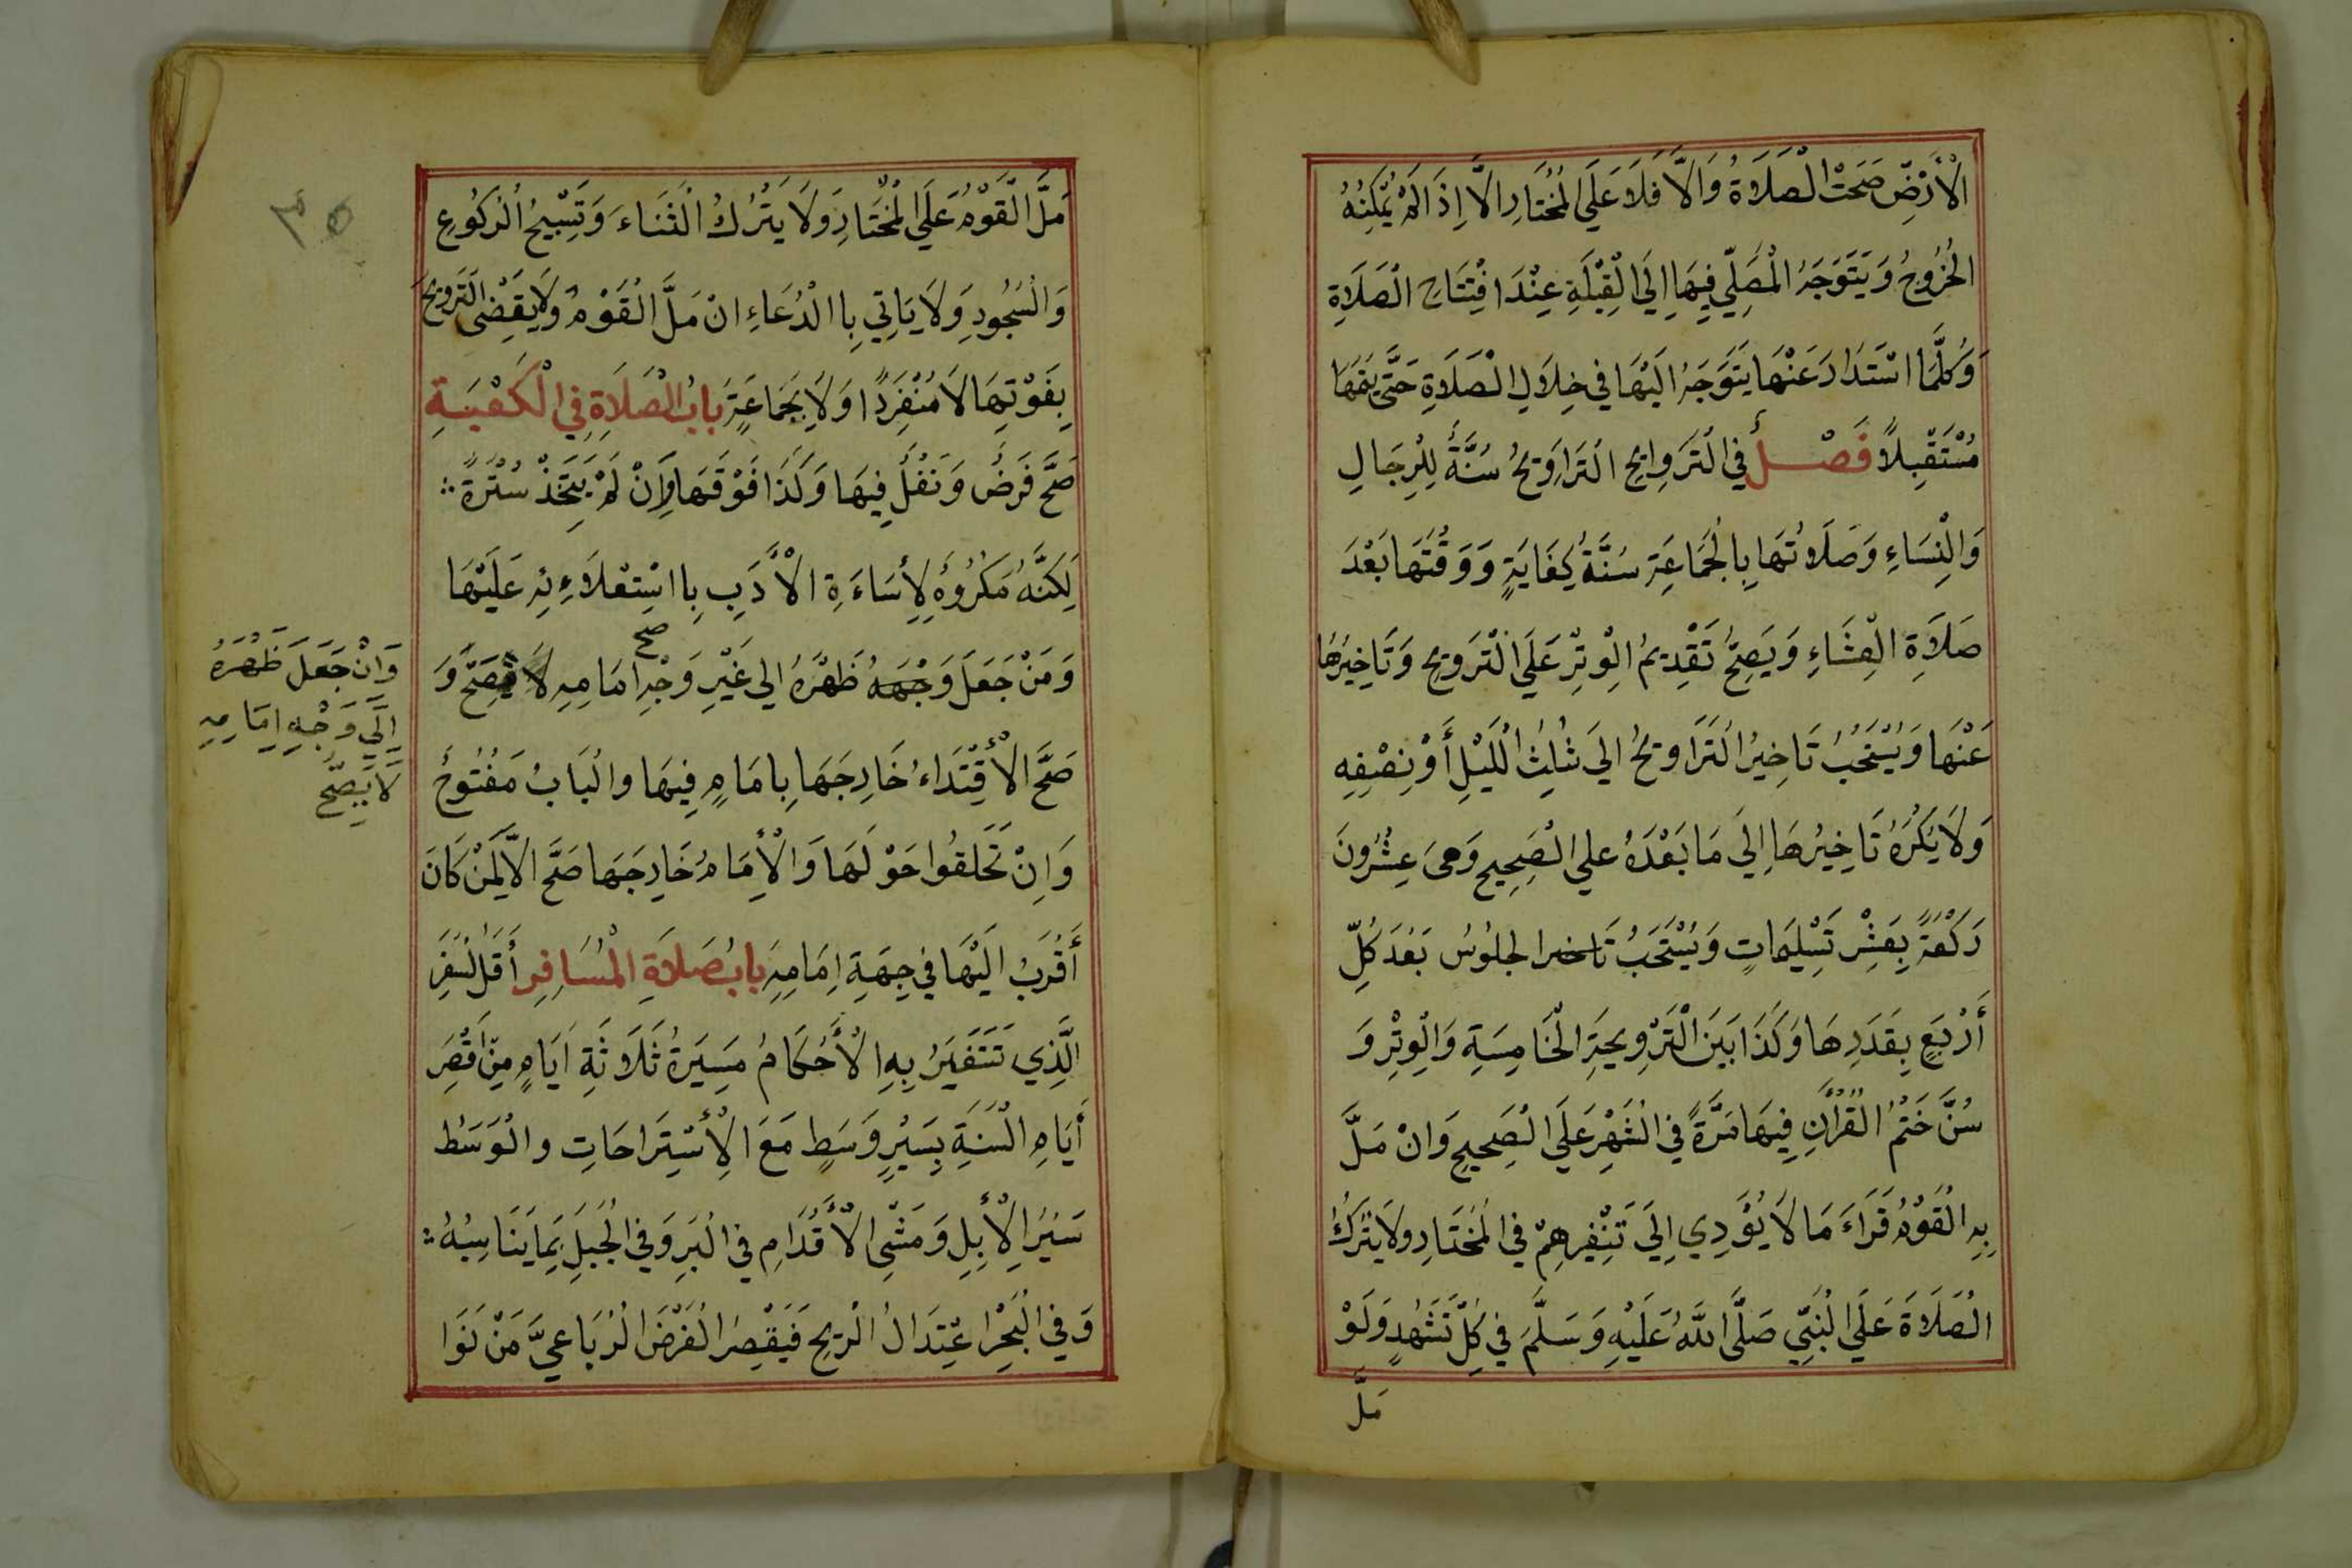 الْأَرْضِ صَحَّتْ الْصَلَاةُ وَالَّا فَلَا عَلَي الْمُخْتَارِ الَّا اِذَا لَمْ يُمْكِنُهُ
الْخُرُوجُ وَيَتَوَجَهُ الْمُصَلِّي فِيهَا اِلَى الْقِبْلَةِ عِنْدَ افْتِتَاحِ الْصَلَاةِ
وَكُلَّمَا اسْتَدَارَ عَنْهَا يَتَوَجَهُ الَيْهَا في خِلَالِ الْصَلَاةِ حَتَّى يتمهَا
مُسْتَقْبِلًا فَصْلٌ في الْتَرَوِايحِ التَرَاوِيحُ سُنَّةٌ لِلرِجَالِ
وَالْنِسَاءِ وَصَلَاتُهَا بِالْجَمَاعَةِ سُنَّةُ كِفَايَةٍ وَوَقْتُهَا بَعْدَ
صَلَاةِ الْعِشَاءِ وَيَصِحُّ تَقْدِيمُ الْوِتْرِ عَلَي الْتَرَويحِ وَتَاخِيرُهَا
عَنْهَا وَيُسْتَحَبُ تَاخِيرُ الْتَرَاويحُ الىَ ثُلِثْ الْلَيْلِ أَوْ نِصْفِهِ
وَلَا يَكْرَهُ تَاخِيرُهَا اِلَى مَا بَعْدَهُ علي الْصَحِيحِ وَهيَ عِشْرُونَ
رَكْعَةً بِعَشْرِ تَسْلِيمَاتٍ وَيُسْتَحَبُ تَاخيرا لجلُوسُ بَعْدَ كُلِّ
أَرْبَعٍ بِقَدَرِهَا وَكَذَا بَيَنَ الْتَرْوِيحَةِ الْخَامِسَةِ وَالْوِتْرِ وَ
سُنَّ خَتْمُ الْقُرْاَنِ فِيهَا مَرَّةً في الْشَهْرِ عَلَي الْصَحِيحِ وَانْ مَلَّ
بِهِ الْقَوْمُ قَرَاءَ مَا لَا يُؤَدِي اِلَي تَنْفِيرِهِمْ في الْمُخْتَارِ ولَا يَتْرُكُ
الْصَلَاةَ عَلَي الْنَبِيِّ صَلَّى اللَّهُ عَلَيْهِ وَسَلَّمَ في كِلِّ تَشَهُدٍ وَلَوْ
مَلَّ
٣٥
مَلَّ الْقَوْمُ عَلَي الْمُخْتَارِ وَلَا يَتْرُكُ الْثَنَاءَ وَتَسْبِيحُ الْرُكُوعِ
وَالْسُجُودِ وَلَا يَاتِي بِا الْدُعَاءِ انْ مَلَّ الْقَوْمُ وَلَا يَقْضَى الْتَرويحَ
بِفَوْتِهَا لَا مُنْفَرِدًا وَلَا بِجَمَاعَةٍ بابُ الْصَلَاةِ فِي الْكَعْبَةِ
صَحَّ فَرَضُ وَنَفْلُ فِيهَا وَكَذَا فَوْقَهَا وَاِنْ لَمْ يَتَّخِذْ سُتْرَةً ؞
لَكِنَّهُ مَكْرُوهُ لِاِسَاءَةِ الْاَدَبِ بِا اسْتِعْلَاءِئِهِ عَلَيْهَا
وَمَنْ جَعَلَ وَجْهَهُ ظَهْرَهُ الي غَيْرِ وَجْهِ امَامِهِ صح لَا يَصِحَّ وَ
وَانْ جَعَلَ ظَهْرَهُ
اِلَي وَجْهِ اِمَامِهِ
لَا يَصِحَّ
صَحَّ الْأقْتِدَاءُ خَارِجَهَا بِامَامٍ فِيهَا والْبَابُ مَفْتُوحُ
وَاِنْ تَحَلَقُوا حَوْلَهَا وَالْأِمَامُ خَارِجَهَا صَحَّ الَّا لِمَنْ كَانَ
أَقْرَبُ الَيْهَا في جِهَةِ اِمَامِهِ بابُ صَلَاةِ الْمُسَافِرِ أَقَلُ سَفَرِ
الَّذِي تَتَغَيَرُ بِهِ الْأَحْكَامُ مَسِيَرةُ ثَلَاثَةِ اَيَامٍ مِنْ اَقْصَرِ
أَيَامِ الْسَنَةِ بِسَيْرٍ وَسَطٍ مَعَ الْأسْتِرَاحَاتِ والْوَسَطُ
سَيْرُ الْأِبِلِ وَمَشْىِ الْأَقْدَامِ في الْبَرِ وَفي الْجَبَلِ بِمَا يَنَاسِبُهُ ؞
وَفي الْبَحْرِ اعْتِدَالُ الْرِيحِ فَيَقْصِرُ الْفَرْضَ الْرُبَاعيَّ مَنْ نَوَا